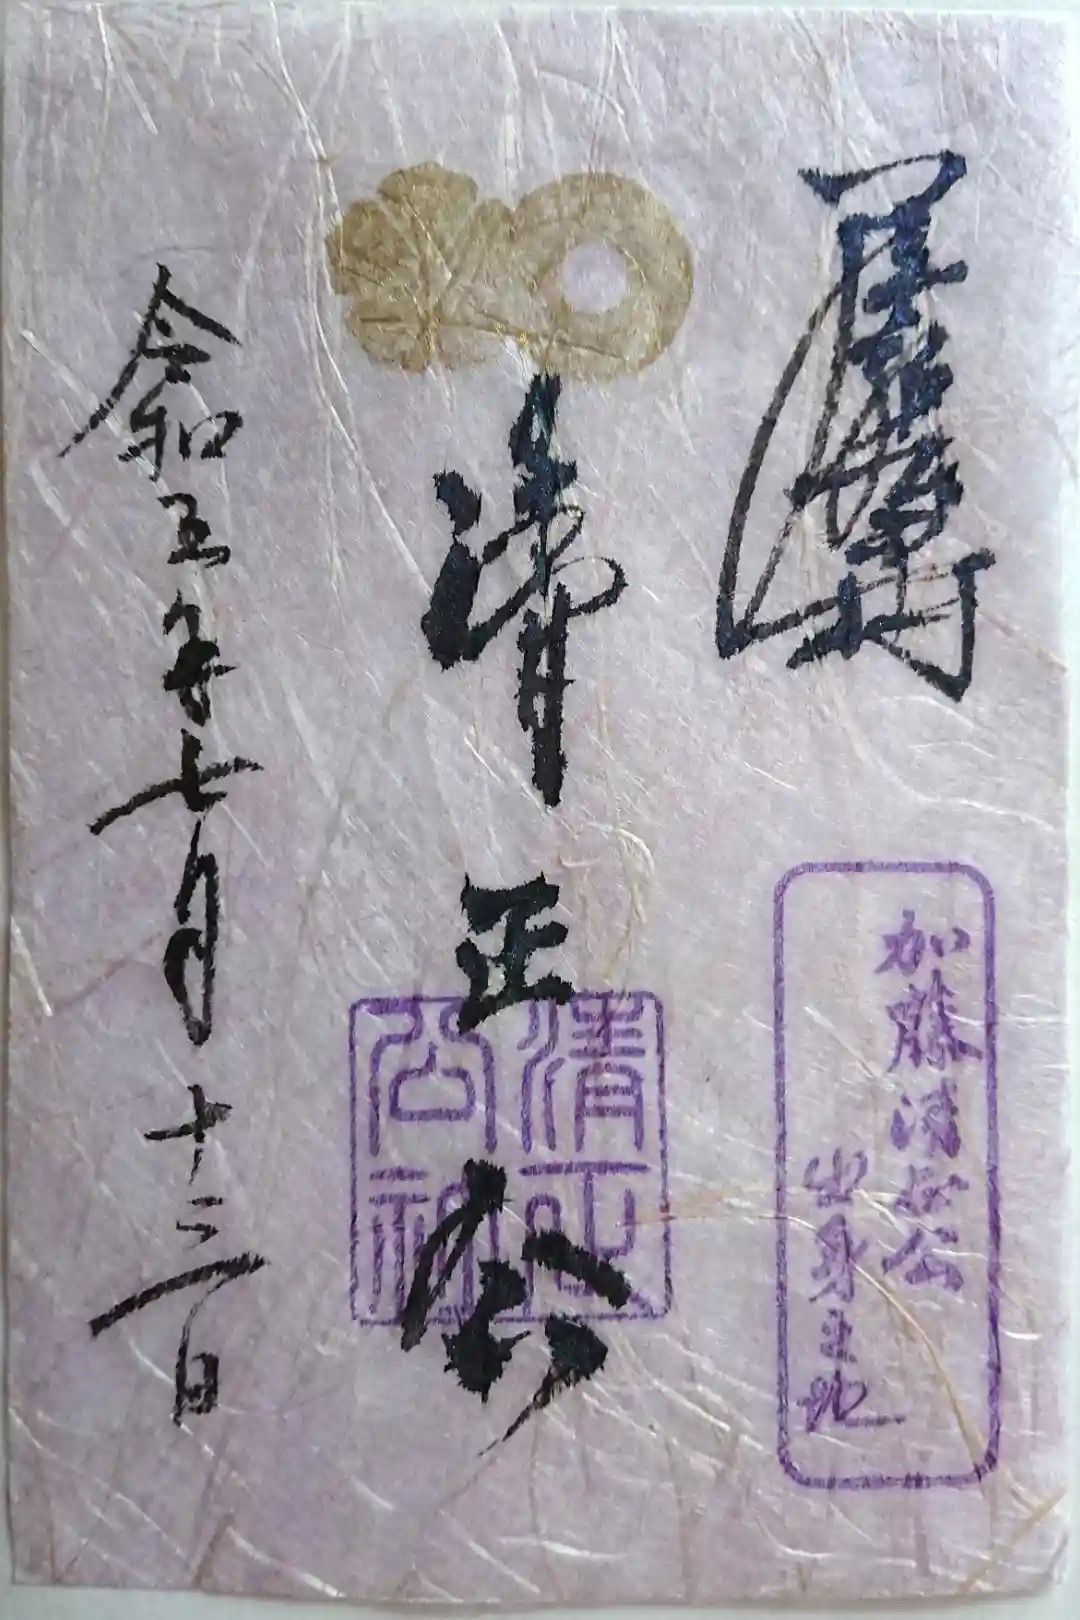 加藤清正公
出身之地
清正公
清正
公
令和五年七月十三日